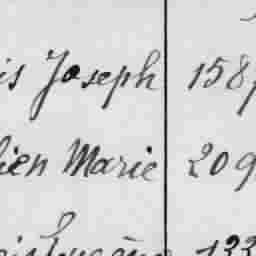 is Joseph 158
lien Marie 209
Eugène 133